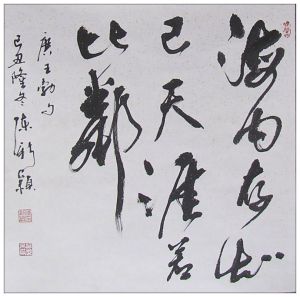 海内存知
己天涯若
比鄰
唐王勃句
己丑隆冬陳